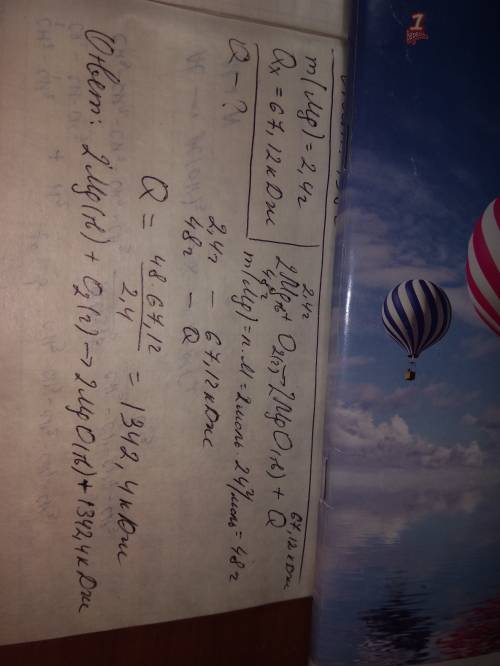 m(Mg) = 2,4г
Qx = 67,12кДж
Q - ?
2,4г 67,12кДж
2Mg(т) + O2(г) → 2MgO(т) + Q
48г
m(Mg) = n·M = 2моль · 24г/моль = 48г
2,4г - 67,12кДж
48г - Q
Q = 48·67,12 / 2,4 = 1342,4кДж
Ответ: 2Mg(т) + O2(г) → 2MgO(т) + 1342,4кДж
1